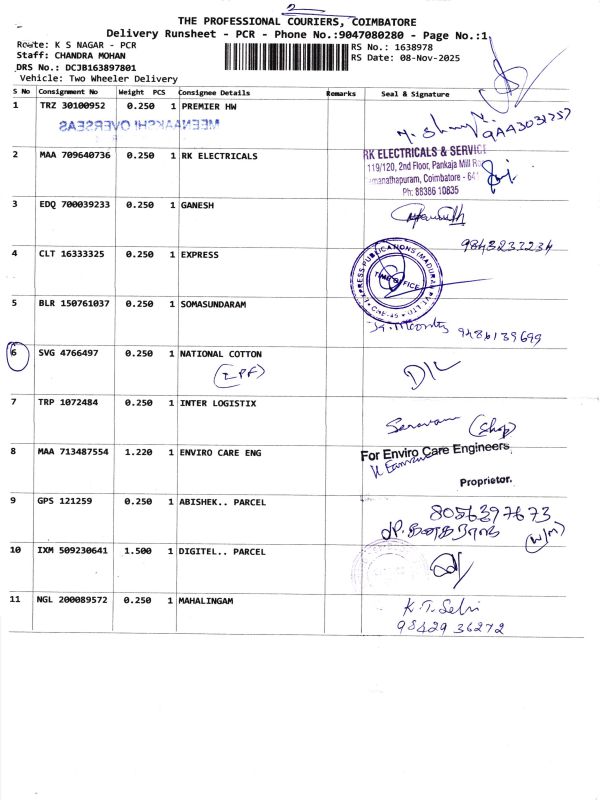 2
THE PROFESSIONAL COURIERS, COIMBATORE
Delivery Runsheet - PCR - Phone No.:9047080280 - Page No.:1
Route: K S NAGAR - PCR
Staff: CHANDRA MOHAN
DRS No.: DCJB163897801
Vehicle: Two Wheeler Delivery
RS No.: 1638978
RS Date: 08-Nov-2025
S No Consignment No Weight PCS Consignee Details Remarks Seal & Signature
1 TRZ 30100952 0.250 1 PREMIER HW
MEENAAKSHI OVERSEAS
2 MAA 709640736 0.250 1 RK ELECTRICALS
RK ELECTRICALS & SERVIC
119/120, 2nd Floor, Pankaja Mill Ro
manathapuram, Coimbatore - 641
Ph: 88386 10835
3 EDQ 700039233 0.250 1 GANESH
9843233234
4 CLT 16333325 0.250 1 EXPRESS
EXPRESS PUBLICATIONS (MADURAI) PVT LTD
TIME OFFICE
CBE-45
5 BLR 150761037 0.250 1 SOMASUNDARAM
9486139699
6 SVG 4766497 0.250 1 NATIONAL COTTON
(IPF)
D/L
7 TRP 1072484 0.250 1 INTER LOGISTIX
Saravan (Shop)
8 MAA 713487554 1.220 1 ENVIRO CARE ENG
For Enviro Care Engineers
Proprietor.
9 GPS 121259 0.250 1 ABISHEK.. PARCEL
8056397673
(W/M)
10 IXM 509230641 1.500 1 DIGITEL.. PARCEL
11 NGL 200089572 0.250 1 MAHALINGAM
K.T. Selvi
98429 36272